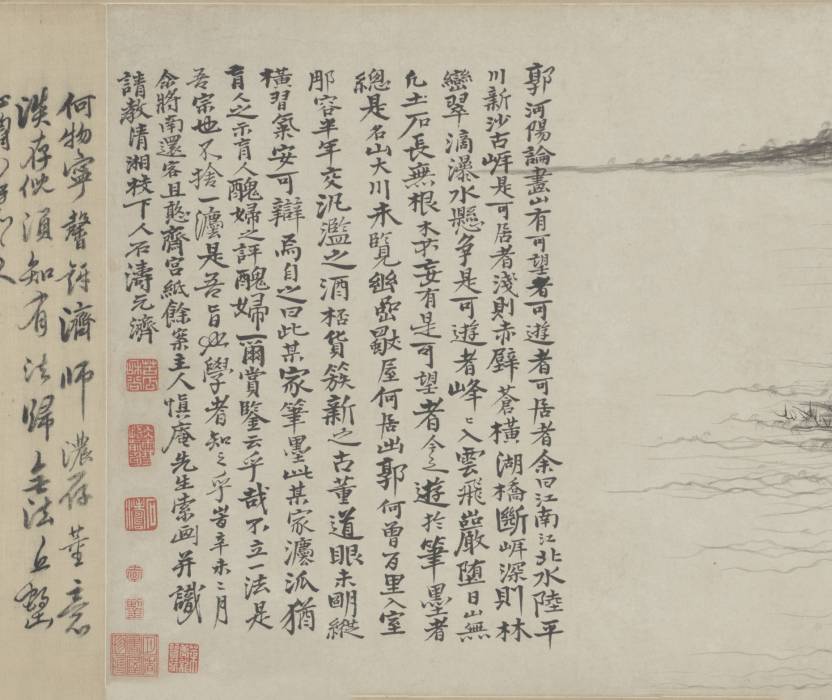 郭河陽論畫山有可望者可遊者可居者余曰江南江北水陸平
川新沙古岸是可居者淺則赤壁蒼橫湖橋斷岸深則林
巒翠滴瀑水懸爭是可遊者峰峰入雲飛巖墮日山無
凡土石長無根木不妄有是可望者今之遊於筆墨者
總是名山大川未覽幽巖獨屋何居出郭何曾百里入室
那容半年交汎濫之酒栝貨簇新之古董道眼未明縱
橫習氣安可辯焉自之曰此某家筆墨此某家灋派猶
盲人之示盲人醜婦之評醜婦爾賞鑒云乎哉不立一法是
吾宗也不捨一灋是吾旨也學者知之乎旹辛未二月
余將南還客且憨齋宮紙餘案主人慎庵先生索画并識
請教清湘枝下人石濤元濟
何物寧馨訝濟師濃存董意
淡存倪須知有法歸無法丘壑